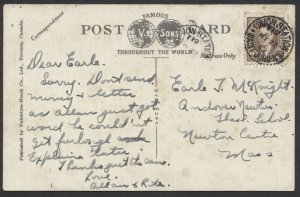 FAMOUS
POST CARD
V & Sons
THROUGHOUT THE WORLD
Address Only
Correspondence
Published by Valentine-Black Co., Ltd., Toronto, Canada.
Dear Earle.
Sorry. Don't send
money & letter
as Allan just got
word he couldn't
get furlough
Explain later
Thanks just the same.
Love.
Allan & Rita.
Earle T. McKnight.
Andover Newton
Theol. School
Newton Centre
Mass